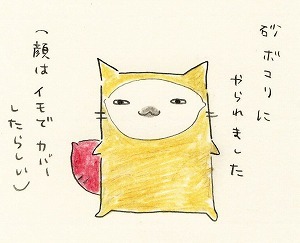 砂ボコリに
やられました
(顔はイモでカバー
したらしい)